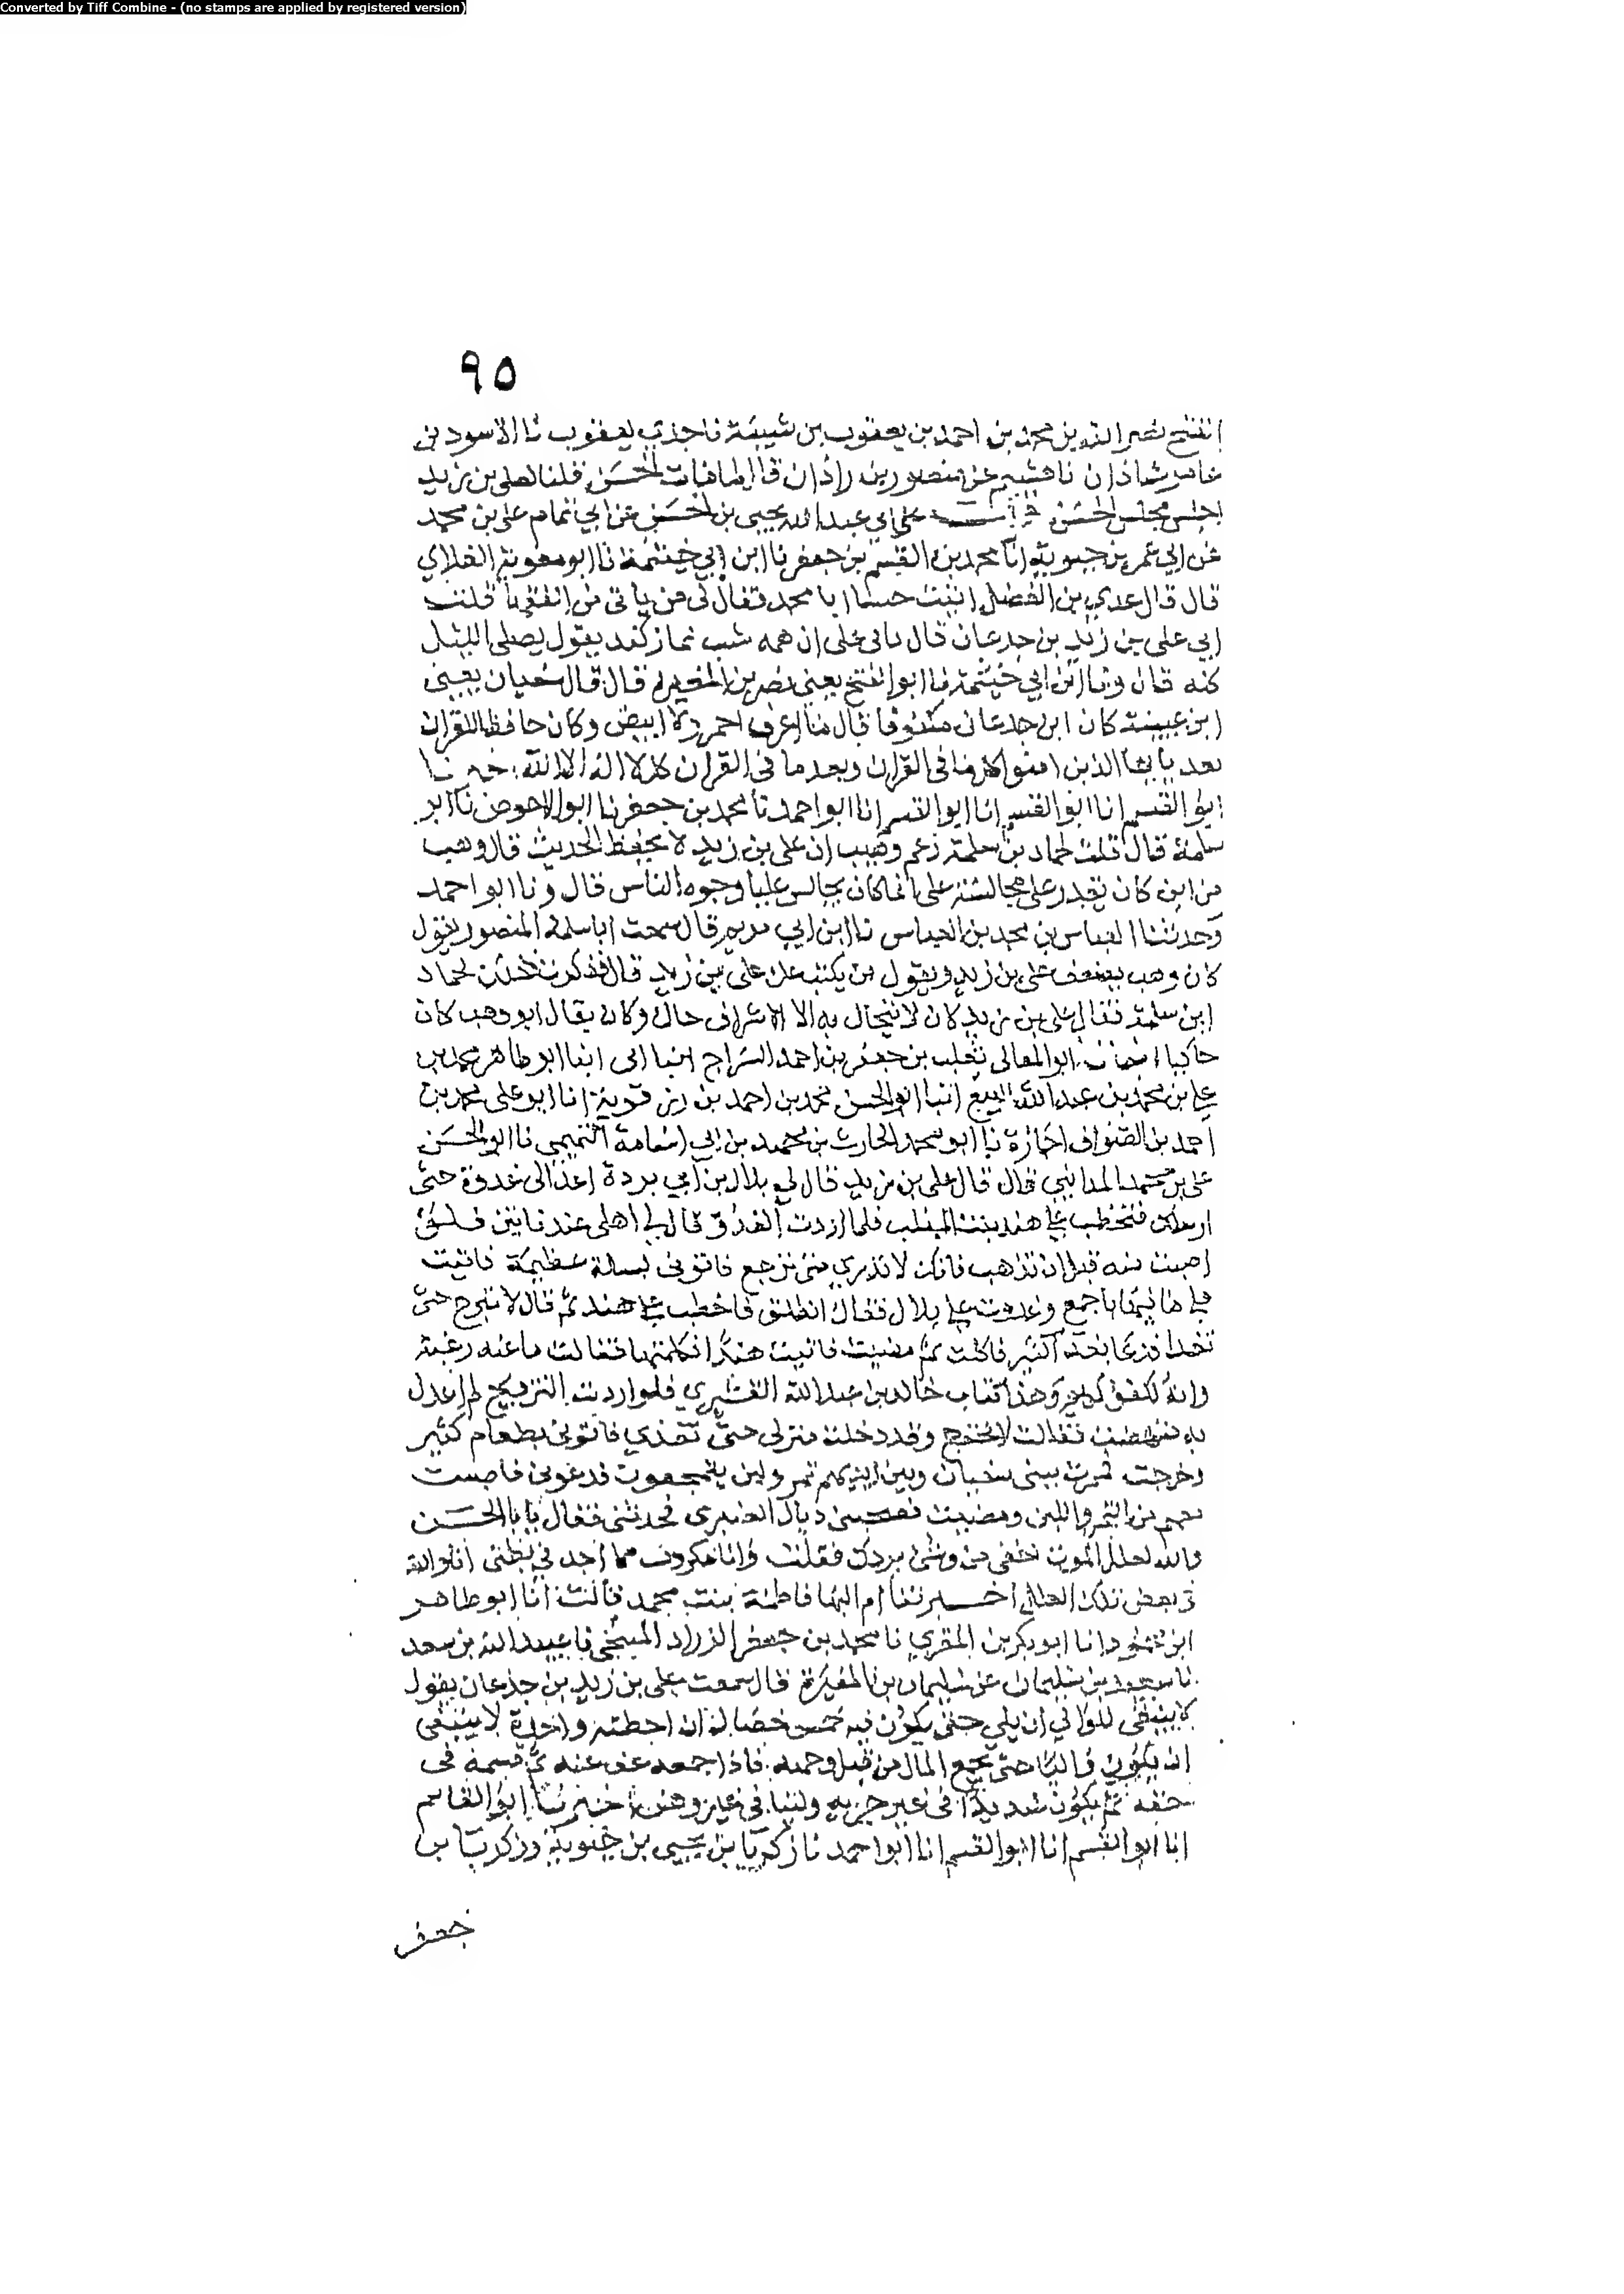 Converted by Tiff Combine - (no stamps are applied by registered version)
٩٥
الفتح نصر الله بن محمد بن احمد بن يعقوب بن شيبة نا جدي يعقوب نا الاسود بن
عامر شاذان نا هشيم عن منصور بن زاذان قال لما مات الحسن قلنا لعلي بن زيد
اجلس مجلس الحسن على ابي عبد الله يحيى بن الحسن عن ابي تمام علي بن محمد
عن ابي عمر بن حيوية انا محمد بن القسم بن جعفر نا ابن ابي خيثمة نا ابو معوية الغلابي
قال قال عدي بن الفضل اتيت حسانا ابا محمد فقال لي من ياتي من قلت
ابي علي بن زيد بن جدعان قال ان همه شب نماز كند يقول يصلي الليل
كله قال ونا ابن ابي خيثمة نا ابو الفتح يعني نصر بن المغيرة قال قال سفيان يعني
ابن عيينة كان ابن جدعان مكفوفا قال ما اعرف احمر ولا ابيض وكان حافظا للقران
يعد يا ايها الذين امنوا كلها في القران ويعد ما في القران كله لا اله الا الله
ابو القسم انا ابو القسم انا ابو القسم انا ابو احمد نا محمد بن جعفر نا ابو الاحوص نا ابو
سلمة قال قلت لحماد بن سلمة زعم وهيب ان علي بن زيد لا يحفظ الحديث قال وهيب
من اين كان يقدر على مجالسته علي انما كان يجالس عليا وجوه الناس قال ونا ابو احمد
وحدثنا العباس بن محمد بن العباس نا ابن ابي مريم قال سمعت ابا سلمة المنصور يقول
كان وهب يضعف علي بن زيد ويقول من يكتب عن علي بن زيد قال فذكرت ذلك لحماد
ابن سلمة فقال علي بن زيد كان لا يتجال به الا الاشراف حال وكان يقال ابو وهب كان
حائكا ابو المعالي ثعلب بن جعفر بن احمد السراج انبا ابي انبا ابو طاهر محمد بن
علي بن محمد بن عبد الله البيع انبا ابو الحسن محمد بن احمد بن رزقوية انا ابو علي محمد بن
احمد بن الصواف اجازة نا ابو محمد الحارث بن محمد بن ابي اسامة التميمي نا ابو الحسن
علي بن محمد المدائني قال قال علي بن زيد قال لي بلال بن ابي بردة اغد الي غدوة حتى
ارسلك فتخطب علي هند بنت المهلب فلما اردت الغدو قال لي اهلي عندنا شيء فلو
اصبت منه قبل ان تذهب فانك لا تدري متى ترجع فاتوني عظيمة فاتيت
اجمع وغدوت على بلال فقال انطلق فاخطب علي هند ثم قال لا تبرح حتى
تغدا فدعا كثير فاكلت ثم مضيت فاتيت هندا فكلمتها فقالت ما عنه رغبة
وانه لكفؤ كريم وهذا كتاب خالد بن عبد الله القشيري فلو اردت التزويج لم اعدل
به فنهضت فقالت لا تخرج وقد دخلت منزلي حتى تتغدي فاتوني بطعام كثير
وخرجت فمررت ببني شيبان وبين ايديهم تمر ولبن يتمجعون فدعوني فاصبت
معهم من التمر واللبن ومضيت العنبري فحدثني فقال يا ابا الحسن
والله لعلل الموت اخفى من وشي بردك فقلت وانا مكروب مما اجد في بطني انا والله
في بعض تلك العلل اخبرتنا ام البها فاطمة بنت محمد قالت انا ابو طاهر
ابن محمود انا ابو بكر بن المقري نا محمد بن جعفر الزراد المنبجي نا عبيد الله بن سعد
نا سعيد بن سليمان عن سليمان بن المغيرة قال سمعت علي بن زيد بن جدعان يقول
لا ينبغي للوالي ان يلي حتى يكون فيه خمس خصال ان اخطته واحدة لا ينبغي
ان يكون واليا حتى يجمع المال من قبل وجهه فاذا جمعه عف عنه ثم قسمه في
حقه ثم يكون شديدا في غير جبرية ولينا في غير وهن اخبرنا ابو القاسم
انا ابو القسم انا ابو القسم انا ابو احمد نا زكريا بن يحيى بن حيوية وزكريا بن
جعفر